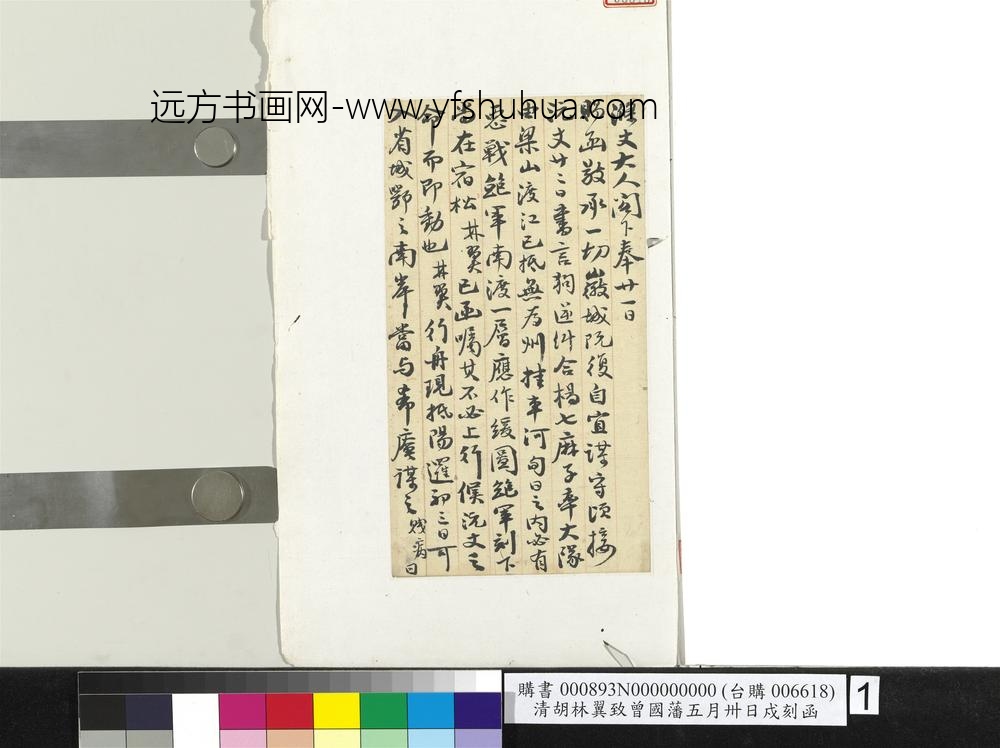 远方书画网-www.yfshuhua.com
滌丈大人閣下奉廿一日
賜函敬承一切徽城既復自宜謀守頃接
沅丈廿二日書言狗逆糾合楊七麻子率大隊
由梁山渡江已抵無為州挂車河旬日之內必有
惡戰鮑軍南渡一層應作緩圖鮑軍刻下
尚在宿松林翼已函囑其不必上行候沅丈之
命而即動也林翼行舟現抵陽邏初三日可
入省城鄂之南岸當与希庵謀之賤病日
購書 000893N000000000 (台購 006618)
清胡林翼致曾國藩五月卅日戌刻函
1